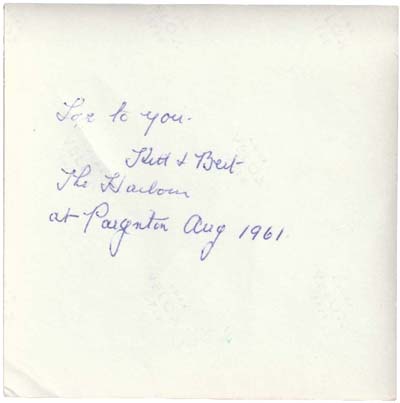 to you -
& Bert
The Harbour
at Paignton Aug 1961.